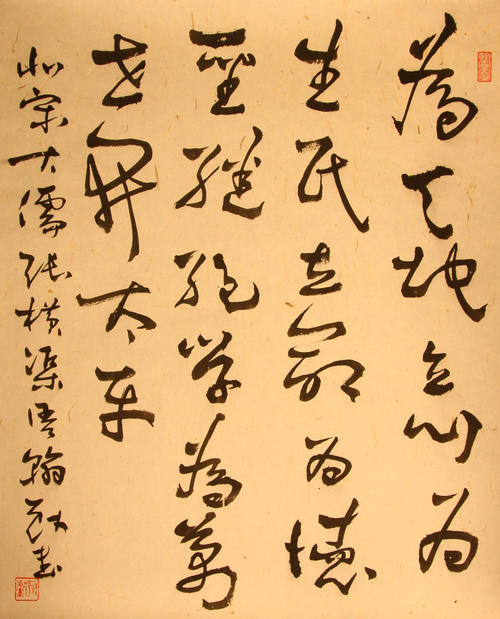 為天地立心为
生民立命为
聖繼絕學為萬
世開太平
北宋大儒張橫渠語翰書